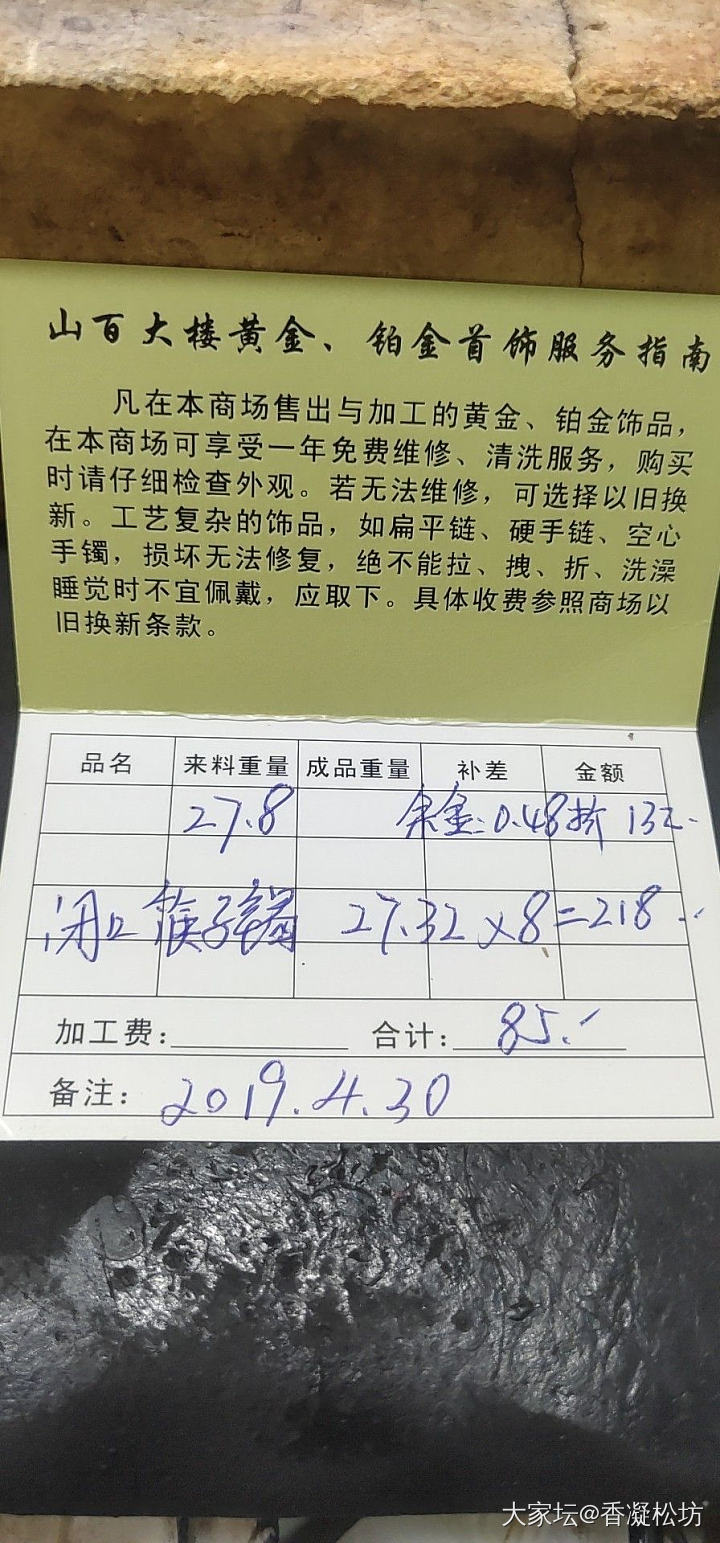 山百大楼黄金、铂金首饰服务指南
凡在本商场售出与加工的黄金、铂金饰品，
在本商场可享受一年免费维修、清洗服务，购买
时请仔细检查外观。若无法维修，可选择以旧换
新。工艺复杂的饰品，如扁平链、硬手链、空心
手镯，损坏无法修复，绝不能拉、拽、折、洗澡
睡觉时不宜佩戴，应取下。具体收费参照商场以
旧换新条款。
品名 来料重量 成品重量 补差 金额
27.8 余金:0.48折 132.
闭口筷子镯 27.32×8=218
加工费: 合计: 85.
备注: 2019.4.30
大家坛@香凝松坊